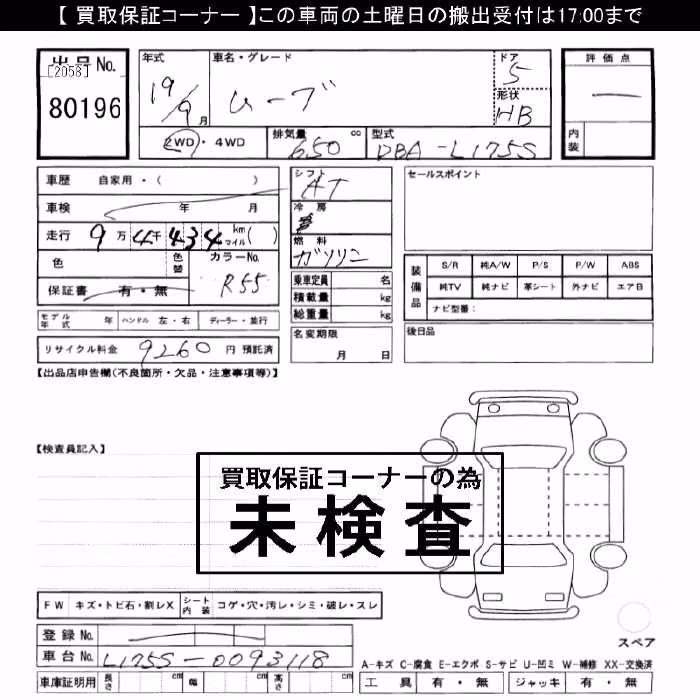 【 買取保証コーナー 】この車両の土曜日の搬出受付は17:00まで
出品 No.
[2058]
80196
年式
19/9月
車名・グレード
ムーブ
ドア
5
形状
HB
評価点
内装
2WD・4WD
排気量
650 cc
型式
DBA-L175S
車歴 自家用・( )
車検 年 月
走行 9万4千434 km マイル( )
色
色替
カラーNo.
R55
保証書 有・無
シフト
AT
冷房
燃料
ガソリン
乗車定員 名
積載量 kg
総重量 kg
セールスポイント
装備品
S/R 純A/W P/S P/W ABS
純TV 純ナビ 革シート 外ナビ エアB
ナビ型番：
モデル年式 年 ハンドル 左・右 ディーラー・並行
名変期限
月 日
後日品
リサイクル料金 9260 円 預託済
【出品店申告欄(不良箇所・欠品・注意事項等)】
【検査員記入】
買取保証コーナーの為
未検査
FW キズ・トビ石・割レX シート内装 コゲ・穴・汚レ・シミ・破レ・スレ
登録 No.
車台 No. L175S-0093118
車庫証明用 長さ cm 幅 cm 高さ cm
スペア
A-キズ C-腐食 E-エクボ S-サビ U-凹ミ W-補修 XX-交換済
工具 有・無 ジャッキ 有・無